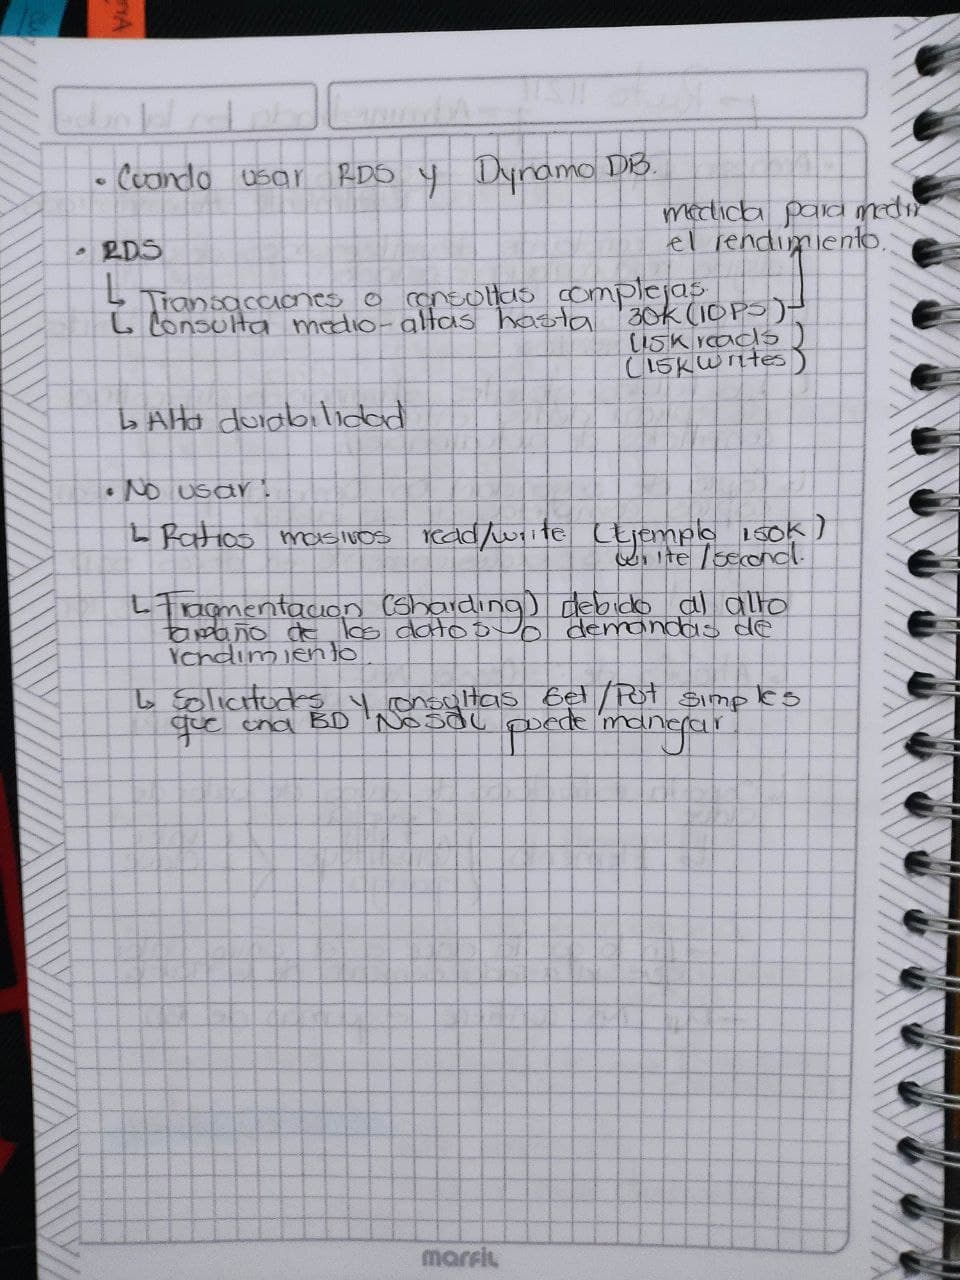 • Cuando usar RDS y Dynamo DB.
medida para medir
el rendimiento.
• RDS
↳ Transacciones o consultas complejas
↳ Consulta medio-altas hasta 30K (IOPS)
(15K reads)
(15K writes)
↳ Alta durabilidad
• No usar:
↳ Ratios masivos read/write (Ejemplo 150K)
write/second.
↳ Fragmentacion (Sharding) debido al alto
tamaño de los datos o demandas de
rendimiento.
↳ Solicitudes y consultas Get/Put simples
que una BD NoSQL puede manejar
marfil